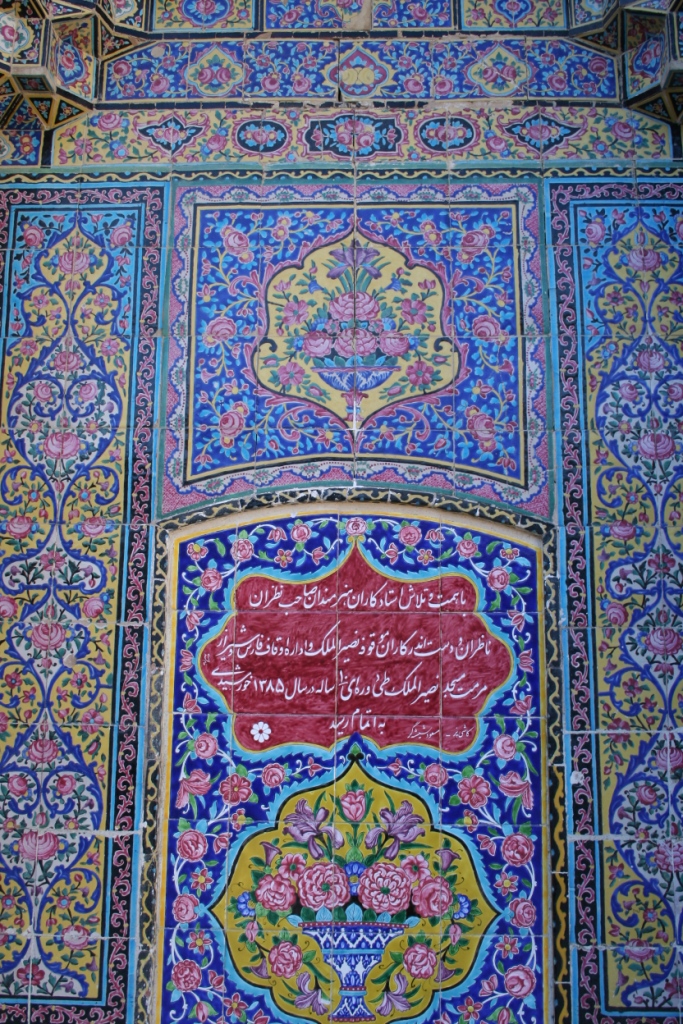 با همت و تلاش استادکاران هنرمندان صاحب نظران
ناظران و دست اندرکاران موقوفه نصیرالملک و اداره اوقاف فارس شیراز
مرمت مسجد نصیرالملک طی دوره‌ی ۱۰ ساله در سال ۱۳۸۵ خورشیدی
به اتمام رسید